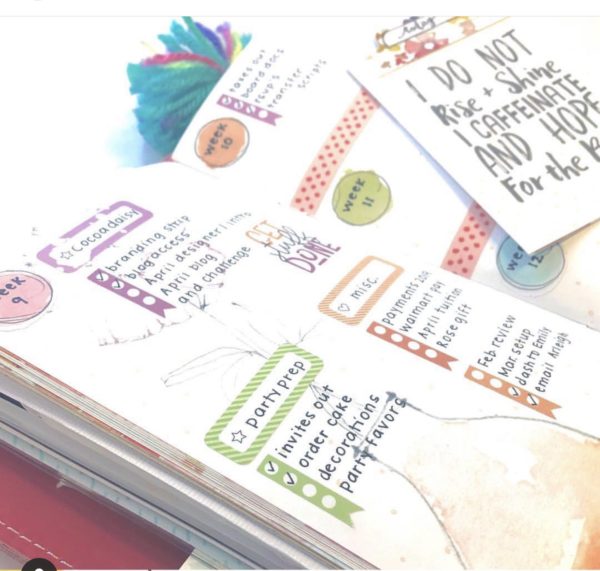 taxes out
board docs
rsvp's
transfer
scripts
week
10
today
I DO NOT
Rise + Shine
I CAFFEINATE
AND HOPE
For the
week
11
week
12
Cocoa daisy
branding strip
blog access
April designer/intro
April blog
and challenge
GET
stuff
DONE
week
9
misc.
payments
walmart pay
April tuition
Rose gift
Feb review
Mar. setup
dash to Emily
email
party prep
invites out
order cake
decorations
party favors